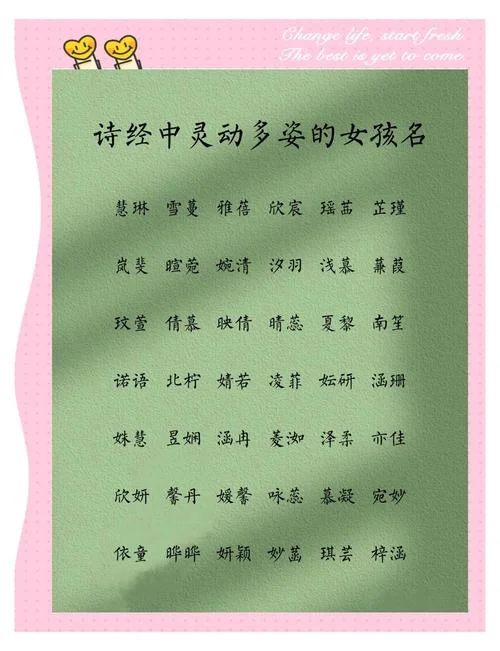 Change life, start fresh.
The best is yet to come.
诗经中灵动多姿的女孩名
慧琳 雪蔓 雅蓓 欣宸 瑶茜 芷瑾
岚斐 暄菀 婉清 汐羽 浅慕 蒹葭
玟萱 倩慕 映倩 晴蕊 夏黎 南笙
诺语 北柠 婧若 凌菲 妘研 涵珊
姝慧 昱娴 涵冉 菱洳 泽柔 亦佳
欣妍 馨丹 媛馨 咏蕊 慕凝 宛妙
依童 晔晔 妍颖 妙菡 琪芸 梓涵